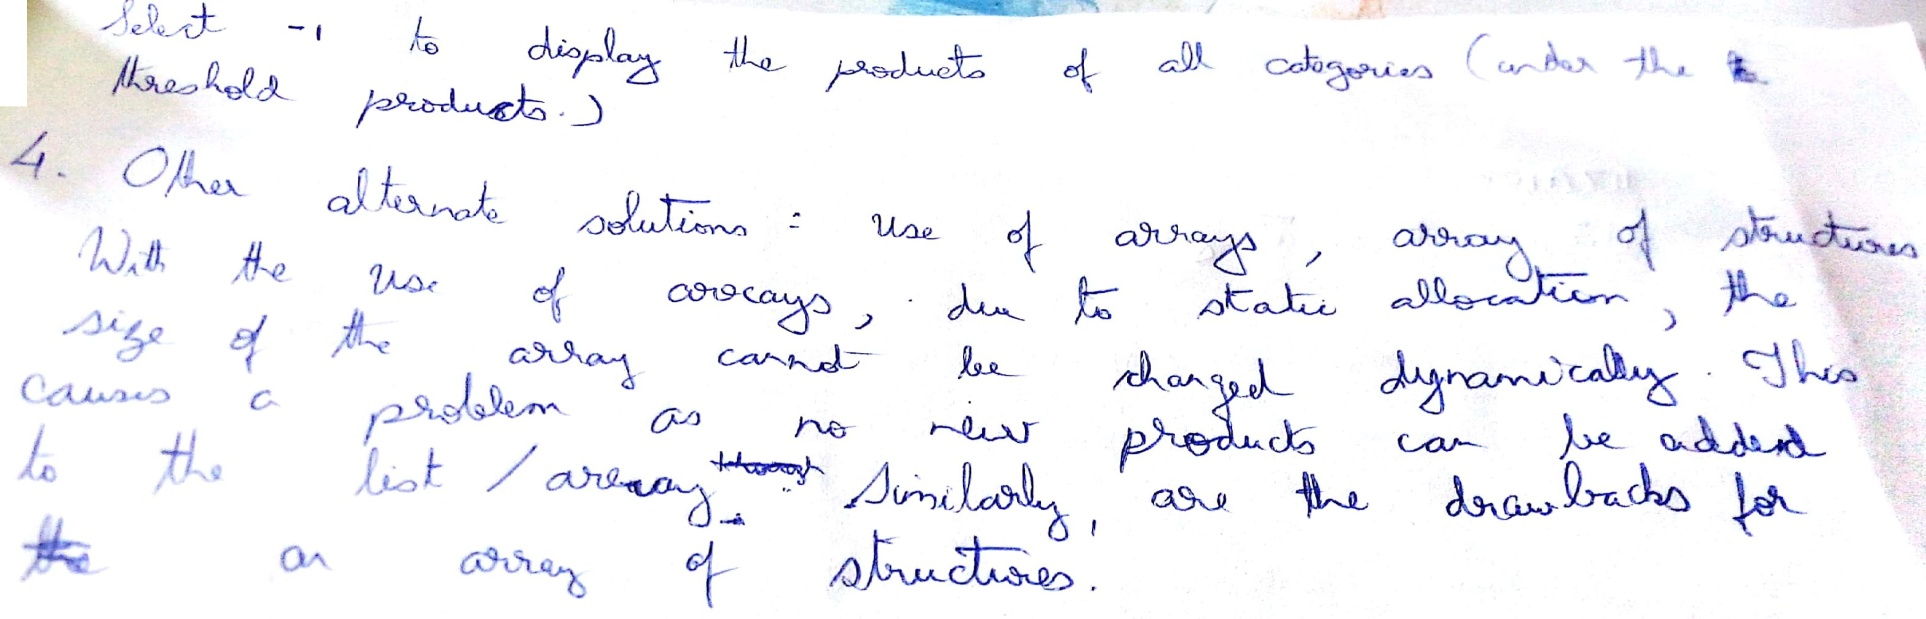 Select -1 to display the products of all categories (under the
threshold products.)
4. Other alternate solutions : Use of arrays, array of structures
With the use of arrays, due to static allocation, the
size of the array cannot be changed dygnamically. This
causes a problem as no new products can be added
to the list / array. Similarly, are the drawbacks for
an array of structures.